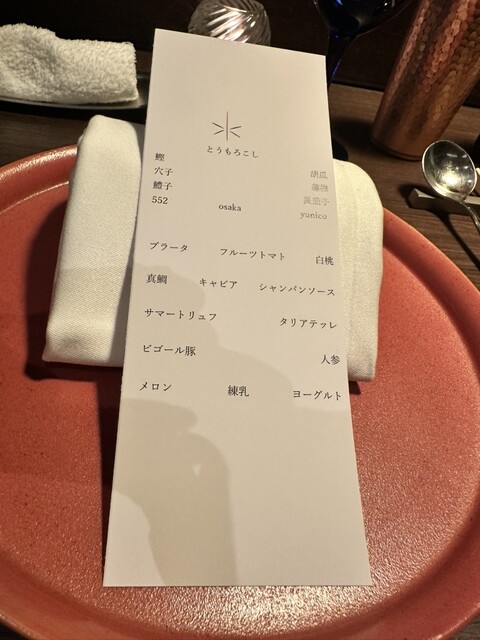 とうもろこし
鰹 胡瓜
穴子
鱧子
552 osaka yunico
ブラータ フルーツトマト 白桃
真鯛 キャビア シャンパンソース
サマートリュフ タリアテッレ
ビゴール豚 人参
メロン 練乳 ヨーグルト